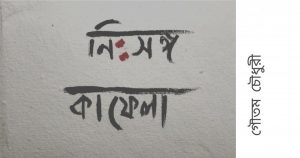 নিঃসঙ্গ
কাফেলা
গৌতম চৌধুরী